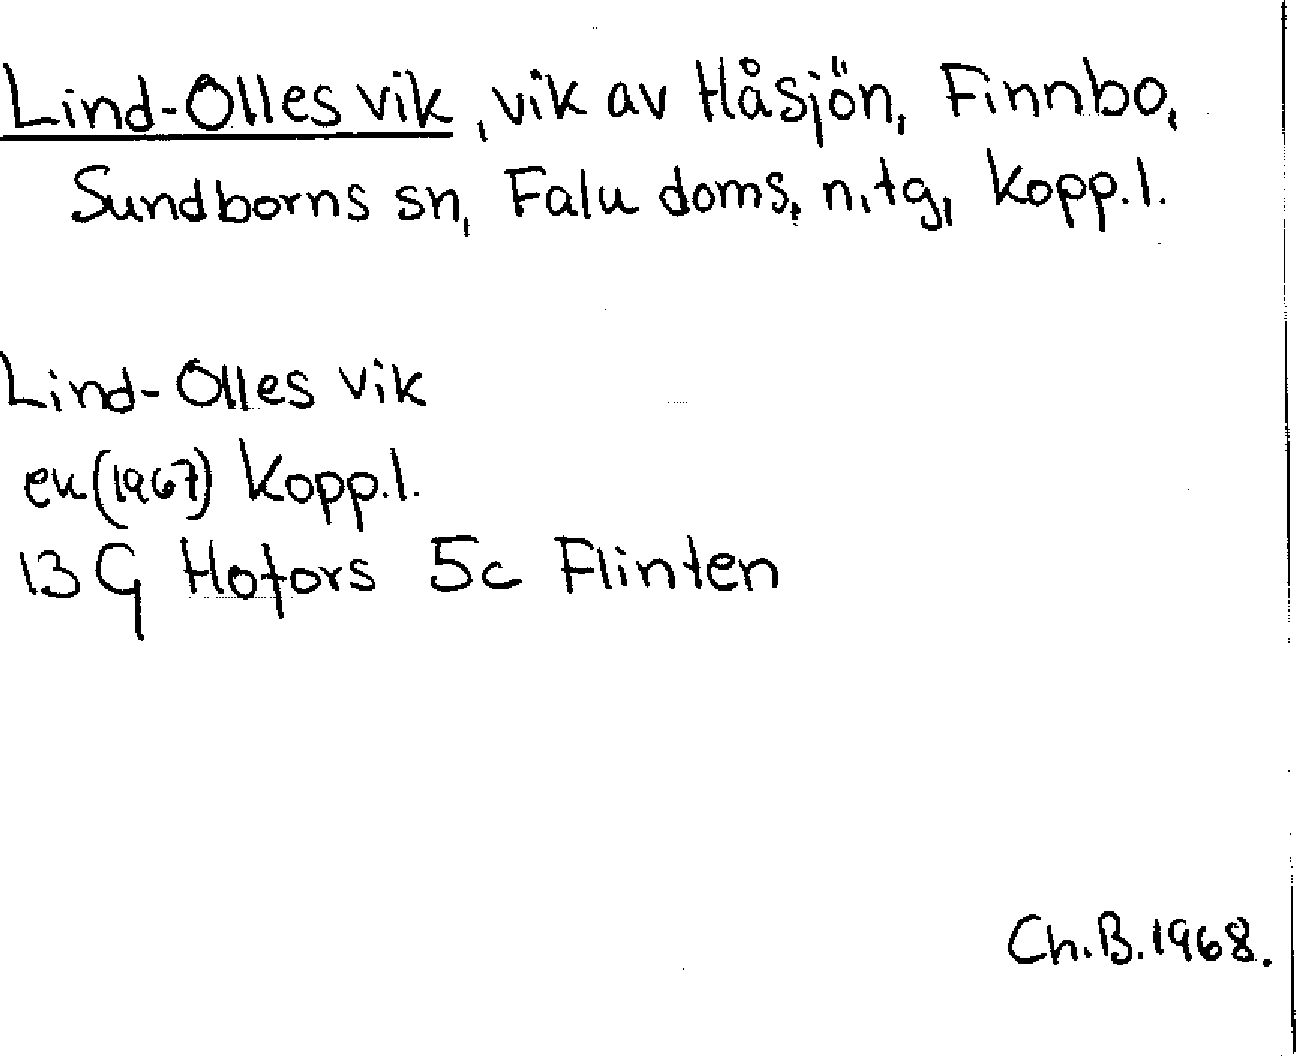 Lind-Olles vik, vik av Håsjön, Finnbo,
Sundborns sn, Falu doms. n. tg, Kopp. l.
Lind-Olles vik
ek (1967) Kopp. l.
13 G Hofors 5c Flinten
Ch. B. 1968.